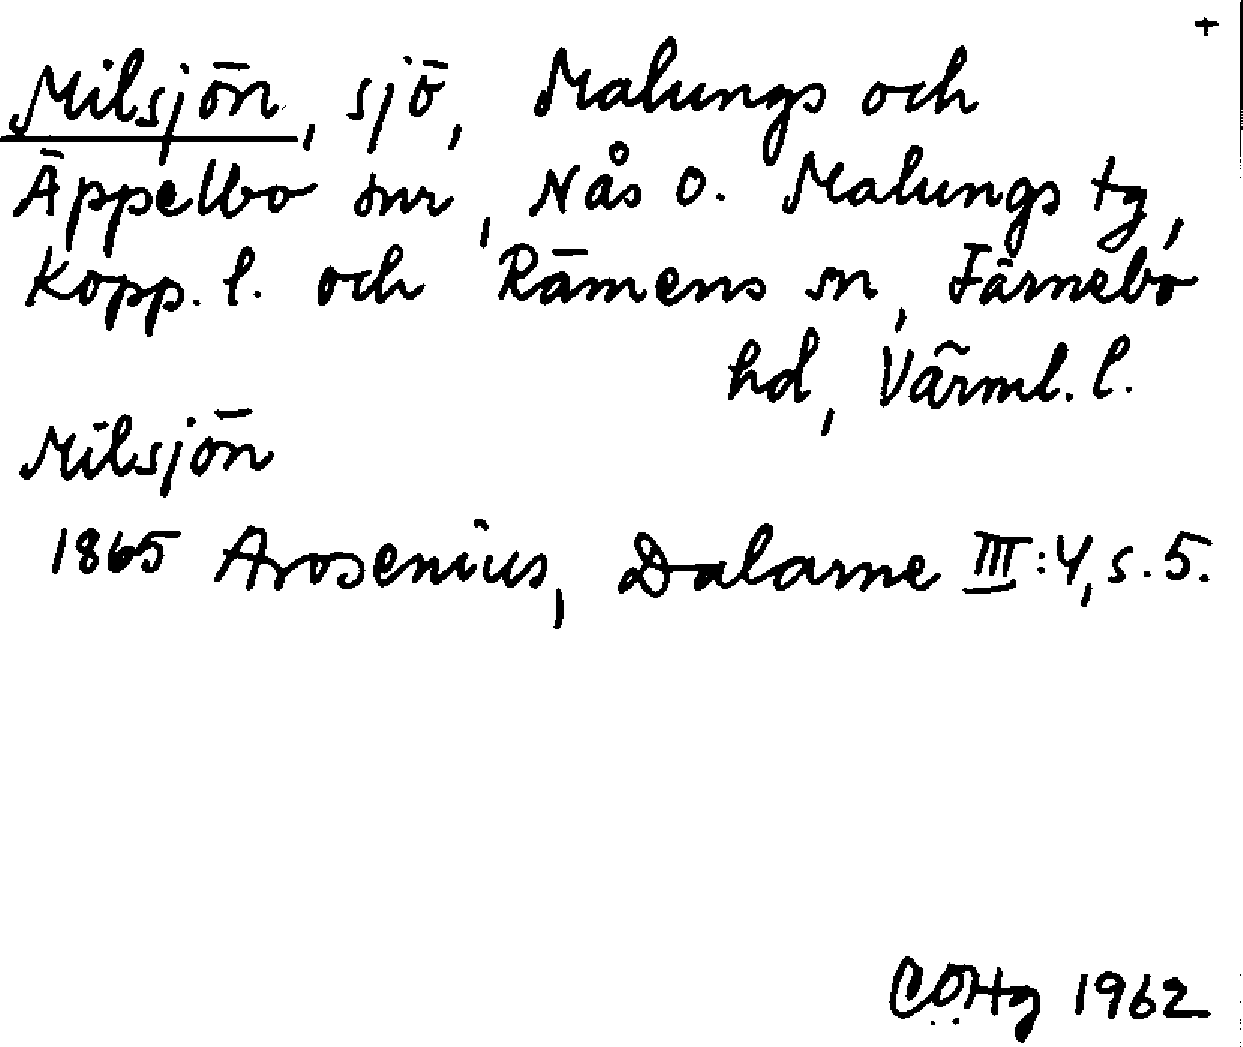 +
Milsjön, sjö, Malungs och
Äppelbo snr, Nås o. Malungs tg,
Kopp. l. och Rämens sn, Färnebo
hd, Värml. l.
Milsjön
1865 Arosenius, Dalarne III:4, s. 5.
COHg 1962